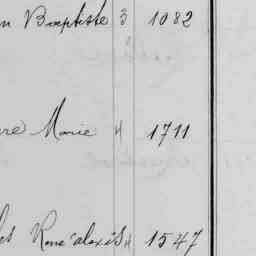 n Baptiste 3 1082
re Marie 4 1711
René alexis 4 1547